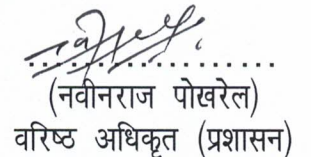 ....................
(नवीनराज पोखरेल)
वरिष्ठ अधिकृत (प्रशासन)